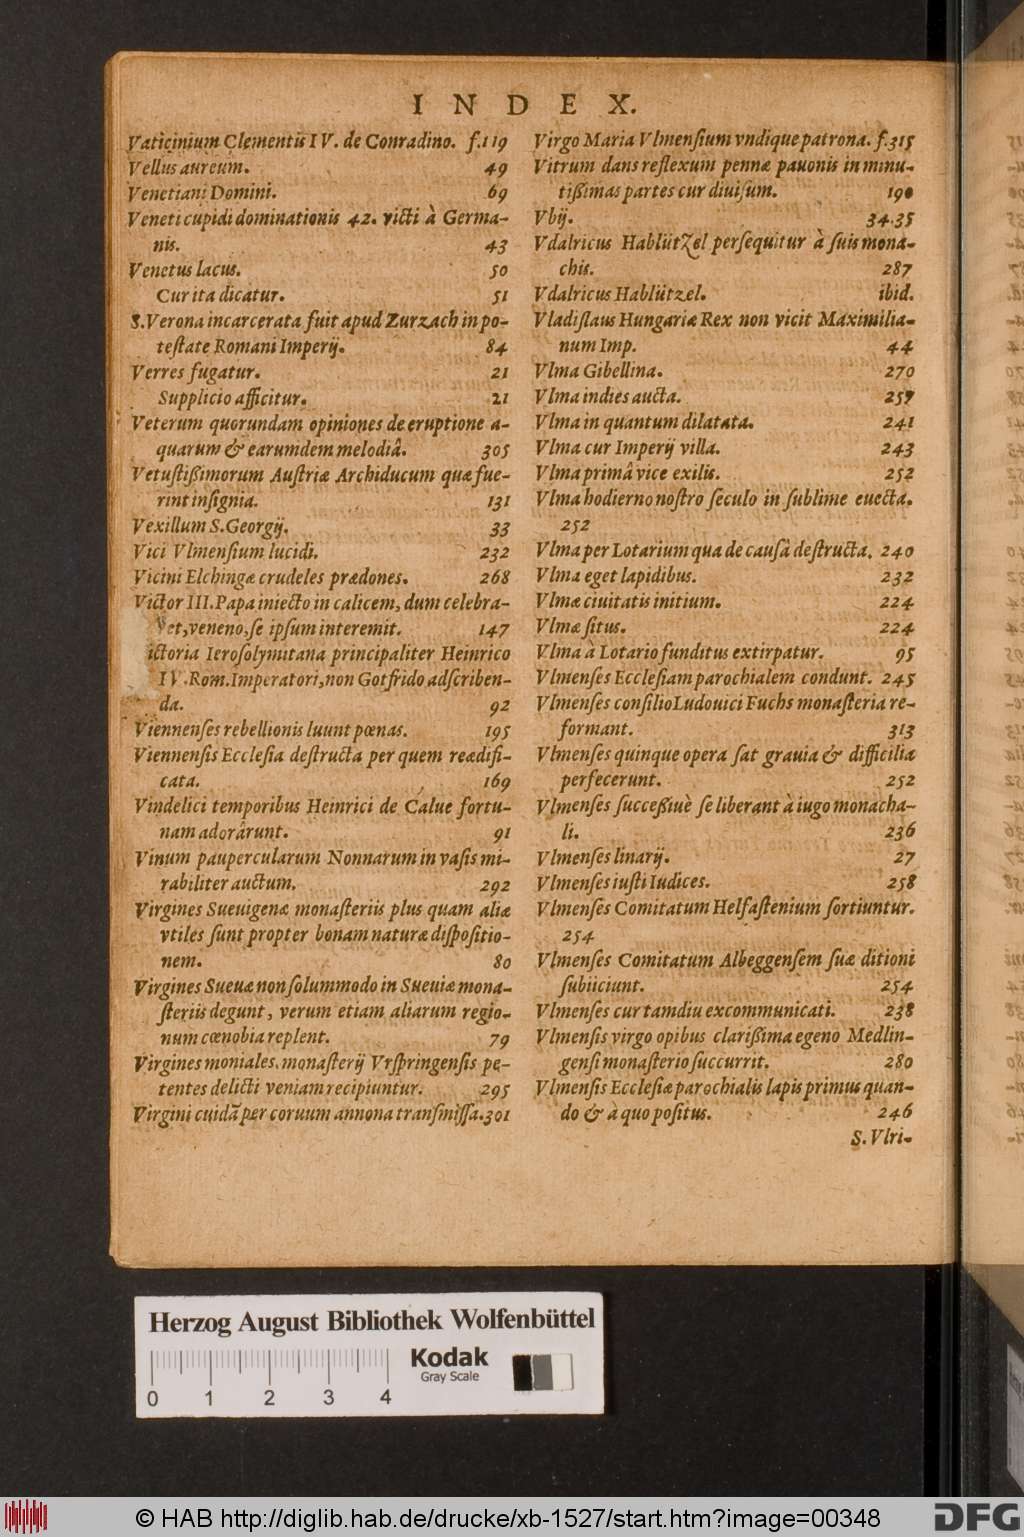 INDEX.
Vaticinium Clementis IV. de Conradino. f.119
Vellus aureum. 49
Venetiani Domini. 69
Veneti cupidi dominationis 42. victi à Germa-
nis. 43
Venetus lacus. 50
Cur ita dicatur. 51
S. Verona incarcerata fuit apud Zurzach in po-
teſtate Romani Imperij. 84
Verres fugatur. 21
Supplicio afficitur. 21
Veterum quorundam opiniones de eruptione a-
quarum & earumdem melodiâ. 305
Vetuſtißimorum Auſtriæ Archiducum quæ fue-
rint inſignia. 131
Vexillum S. Georgij. 33
Vici Vlmenſium lucidi. 232
Vicini Elchingæ crudeles prædones. 268
Victor III. Papa iniecto in calicem, dum celebra-
ret, veneno, ſe ipſum interemit. 147
ictoria Ieroſolymitana principaliter Heinrico
IV. Rom. Imperatori, non Gotfrido adſcriben-
da. 92
Viennenſes rebellionis luunt pœnas. 195
Viennenſis Eccleſia deſtructa per quem reædifi-
cata. 169
Vindelici temporibus Heinrici de Calue fortu-
nam adorârunt. 91
Vinum paupercularum Nonnarum in vaſis mi-
rabiliter auctum. 292
Virgines Sueuigenæ monaſteriis plus quam aliæ
vtiles ſunt propter bonam naturæ diſpoſitio-
nem. 80
Virgines Sueuæ non ſolummodo in Sueuiæ mona-
ſteriis degunt, verum etiam aliarum regio-
num cœnobia replent. 79
Virgines moniales. monaſterij Vrſpringenſis pe-
tentes delicti veniam recipiuntur. 295
Virgini cuidã per coruum annona tranſmiſſa. 301
Virgo Maria Vlmenſium vndique patrona. f.315
Vitrum dans reflexum pennæ pauonis in minu-
tißimas partes cur diuiſum. 190
Vbij. 34.35
Vdalricus Hablützel perſequitur à ſuis mona-
chis. 287
Vdalricus Hablützel. ibid.
Vladiſlaus Hungariæ Rex non vicit Maximilia-
num Imp. 44
Vlma Gibellina. 270
Vlma indies aucta. 257
Vlma in quantum dilatata. 241
Vlma cur Imperij villa. 243
Vlma primâ vice exilis. 252
Vlma hodierno noſtro ſeculo in ſublime euecta.
252
Vlma per Lotarium qua de cauſâ deſtructa. 240
Vlma eget lapidibus. 232
Vlmæ ciuitatis initium. 224
Vlmæ ſitus. 224
Vlma à Lotario funditus extirpatur. 95
Vlmenſes Eccleſiam parochialem condunt. 245
Vlmenſes conſilio Ludouici Fuchs monaſteria re-
formant. 313
Vlmenſes quinque opera ſat grauia & difficilia
perfecerunt. 252
Vlmenſes ſucceßiuè ſe liberant à iugo monacha-
li. 236
Vlmenſes linarij. 27
Vlmenſes iuſti Iudices. 258
Vlmenſes Comitatum Helfaſtenium ſortiuntur.
254
Vlmenſes Comitatum Albeggenſem ſuæ ditioni
ſubiiciunt. 254
Vlmenſes cur tamdiu excommunicati. 238
Vlmenſis virgo opibus clarißima egeno Medlin-
genſi monaſterio ſuccurrit. 280
Vlmenſis Eccleſiæ parochialis lapis primus quan-
do & à quo poſitus. 246
S. Vlri-
Herzog August Bibliothek Wolfenbüttel
Kodak
Gray Scale
0 1 2 3 4
© HAB http://diglib.hab.de/drucke/xb-1527/start.htm?image=00348
DFG